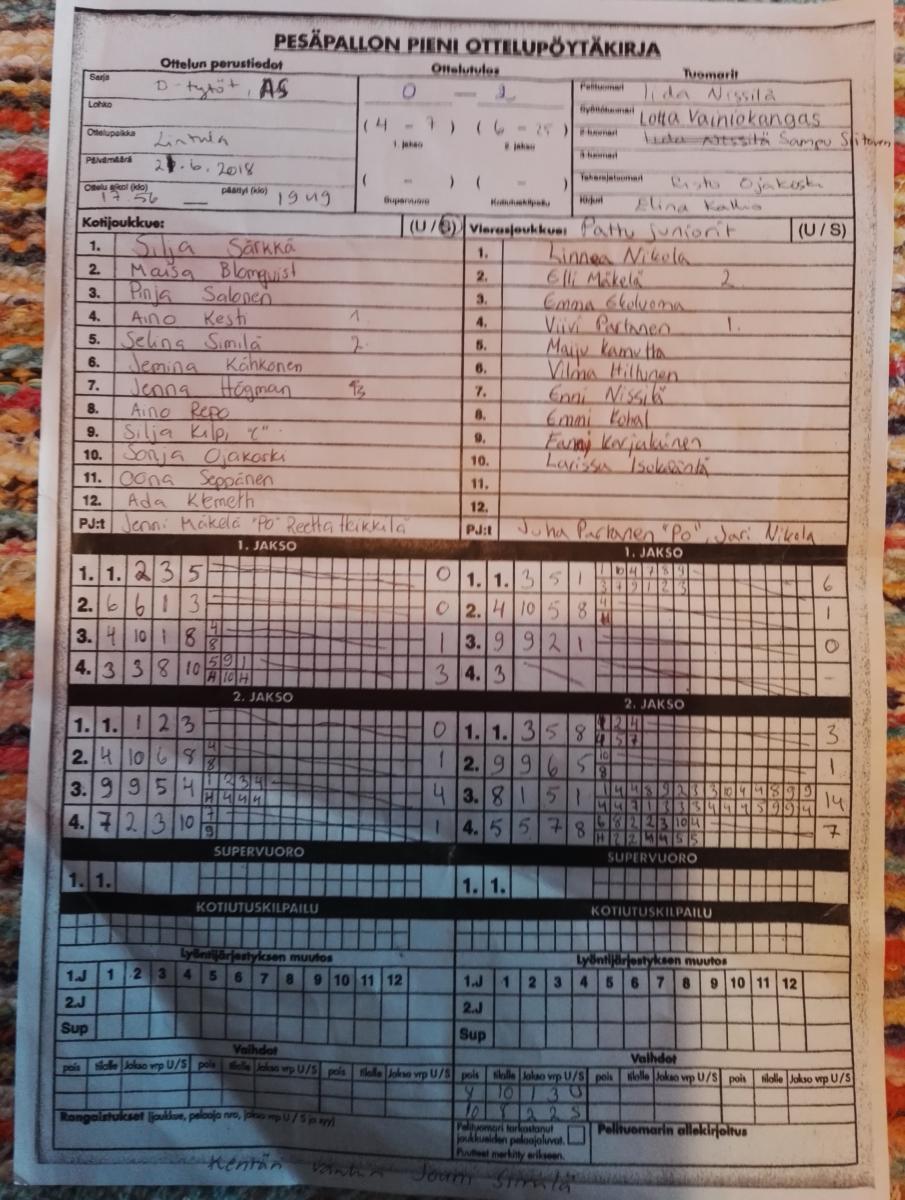 PESÄPALLON PIENI OTTELUPÖYTÄKIRJA
Ottelun perustiedot Ottelutulos Tuomarit
Sarja D-tytöt, AS
0 - 2
Pelituomari Iida Nissilä
Lohko
Syöttötuomari Lotta Vainiokangas
Ottelupaikka Lintula
(4 - 7) (6 - 25)
1. jakso 2. jakso
2-tuomari Iida Nissilä Sampu
3-tuomari
Päivämäärä 21.6.2018
Takarajatuomari Risto Ojakoski
Ottelu alkoi (klo) 17.56 päättyi (klo) 19 49
( - ) ( - )
Supervuoro Kotiutuskilpailu
Kirjuri Elina Kallio
Kotijoukkue: (U / S)
Vierasjoukkue: Pattu juniorit (U / S)
1. Silja Särkkä
1. Linnea Nikola
2. Maisa Blomqvist
2. Elli Mäkelä 2
3. Pinja Salonen
3. Emma
4. Aino Kesti 1
4. Viivi Partanen 1.
5. Selina Similä 2
5. Maiju
6. Jemina Kähkönen
6. Vilma Hiltunen
7. Jenna Högman 3
7. Enni Nissilä
8. Aino Repo
8. Emmi
9. Silja Kilpi "C"
9. Fanny Karjalainen
10. Sonja Ojakoski
10. Larissa
11. Oona Seppänen
11.
12. Ada Klemeth
12.
PJ:t Jenni Mäkelä "PO" Reetta Heikkilä
PJ:t Juha Partanen "PO", Jari Nikola
1. JAKSO 1. JAKSO
1. 1. 2 3 5 0
1. 1. 3 5 1 1 10 4 7 8 9 6
3 7 9 1 2 3
2. 6 6 1 3 0
2. 4 10 5 8 4 1
H
3. 4 10 1 8 4 1
8
3. 9 9 2 1 0
4. 3 3 8 10 5 9 1 3
A 10 H
4. 3 -
2. JAKSO 2. JAKSO
1. 1. 1 2 3 0
1. 1. 3 5 8 1 2 4 3
4 5 7
2. 4 10 6 8 4 1
8
2. 9 9 6 5 10 1
8
3. 9 9 5 4 1 2 3 4 4
H 4 4 4
3. 8 1 5 1 1 4 4 8 9 2 3 3 10 4 4 8 9 9 14
4 4 7 1 3 3 3 4 4 4 5 9 9 4
4. 7 2 3 10 7 1
9
4. 5 5 7 8 6 8 2 2 3 10 4 7
H 2 2 4 4 5 5
SUPERVUORO SUPERVUORO
1. 1.
1. 1.
KOTIUTUSKILPAILU KOTIUTUSKILPAILU
Lyöntijärjestyksen muutos Lyöntijärjestyksen muutos
1.J 1 2 3 4 5 6 7 8 9 10 11 12
1.J 1 2 3 4 5 6 7 8 9 10 11 12
2.J
2.J
Sup
Sup
Vaihdot Vaihdot
pois tilalle Jakso vrp U/S pois tilalle Jakso vrp U/S pois tilalle Jakso vrp U/S
pois tilalle Jakso vrp U/S pois tilalle Jakso vrp U/S pois tilalle Jakso vrp U/S
4 10 1 3 U
10 9 2 2 S
Rangaistukset (joukkue, pelaaja nro, jakso vrp U / S ja syy)
Pelituomari tarkastanut
joukkueiden pelaajaluvat.
Puutteet merkitty erikseen.
Pelituomarin allekirjoitus
Kentän vanhin Jouni Similä